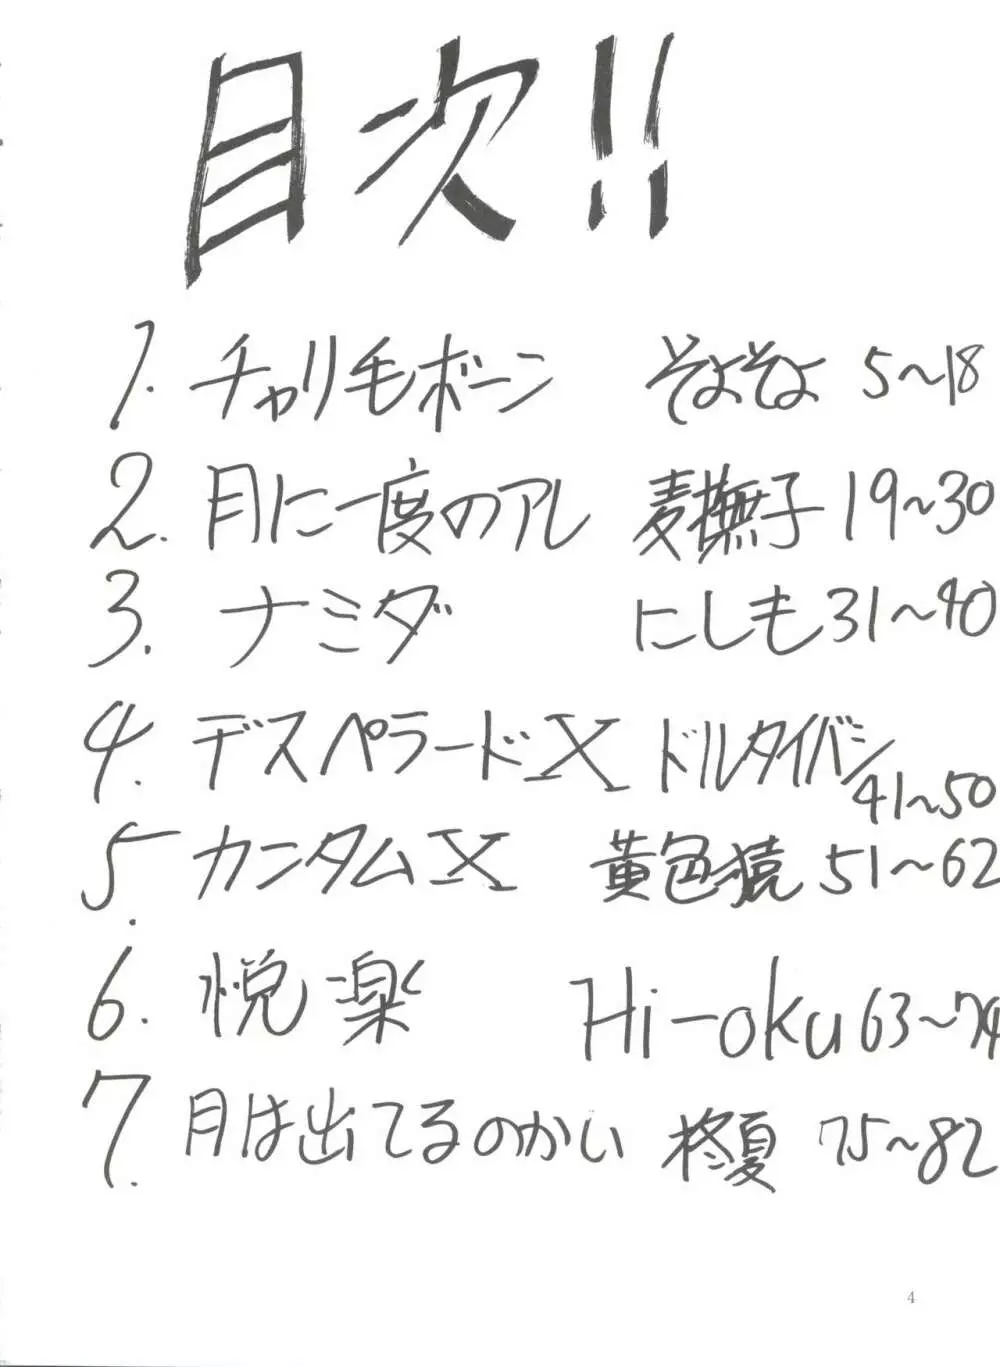 目次!!
1. チャリ毛ボーン そよそよ 5~18
2. 月に一度のアレ 麦撫子 19~30
3. ナミダ にしも 31~40
4. デスペラードX ドルタイバシ
41~50
5. カンタムX 黄色猿 51~62
6. 悦楽 Hi-oku 63~74
7. 月は出てるのかい 柊夏 75~82
4